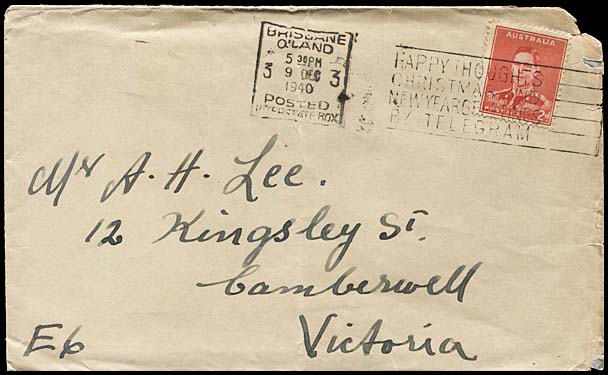 BRISBANE
Q'LAND
5 30PM
3 9 DEC 3
1940
POSTED
INTERSTATE BOX
HAPPY THOUGHTS
CHRISTMAS AND
NEW YEAR
BY TELEGRAM
AUSTRALIA
POSTAGE 2D
Mr A. H. Lee.
12 Kingsley St.
Camberwell
Victoria
E6